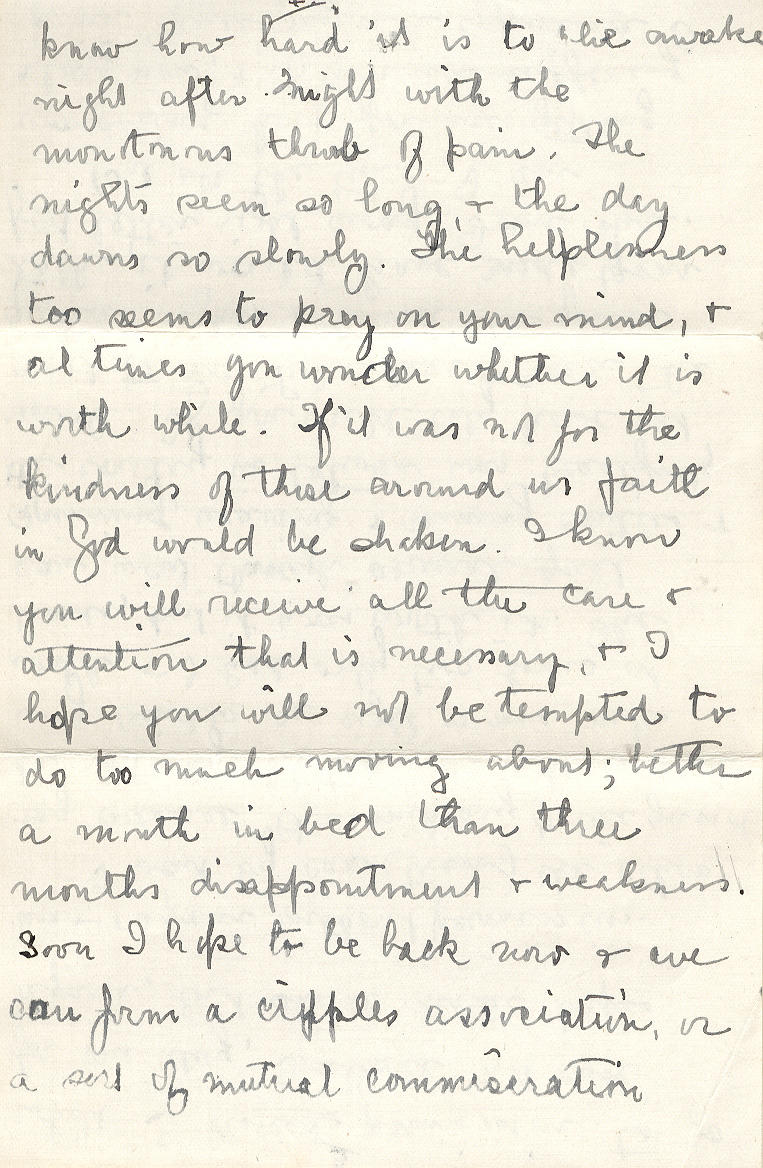 know how hard it is to lie awake
night after night with the
monotonous throb of pain. The
nights seem so long, + the day
dawns so slowly. The helplessness
too seems to prey on your mind, +
at times you wonder whether it is
worth while. If it was not for the
kindness of those around us faith
in God would be shaken. I know
you will receive all the care +
attention that is necessary, + I
hope you will not be tempted to
do too much moving about; better
a month in bed than three
months disappointment + weakness.
Soon I hope to be back now & we
can form a cripples association, or
a sort of mutual commiseration